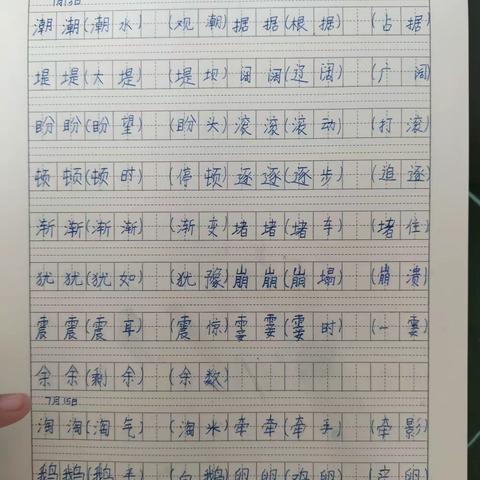 潮潮(潮水)(观潮)据据(根据)(占据)
堤堤(大堤)(堤坝)阔阔(辽阔)(广阔)
盼盼(盼望)(盼头)滚滚(滚动)(打滚)
顿顿(顿时)(停顿)逐逐(逐步)(追逐)
渐渐(渐渐)(渐变)堵堵(堵车)(堵住)
犹犹(犹如)(犹豫)崩崩(崩塌)(崩溃)
震震(震耳)(震惊)霎霎(霎时)(一霎)
余余(剩余)(余数)
7月15日
淘淘(淘气)(淘米)牵牵(牵手)(牵影)
鹅鹅(鹅毛)(白鹅)卵卵(鸡卵)(产卵)